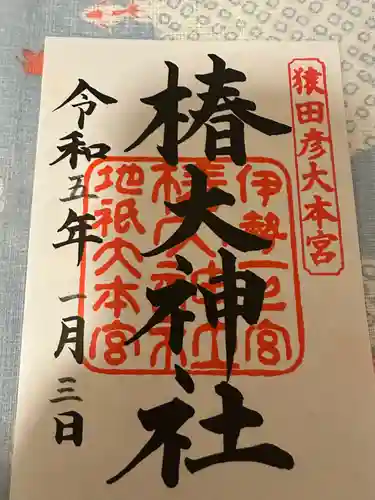 猿田彦大本宮
椿大神社
伊勢一之宮
椿大神社
地祇大本宮
令和五年一月三日